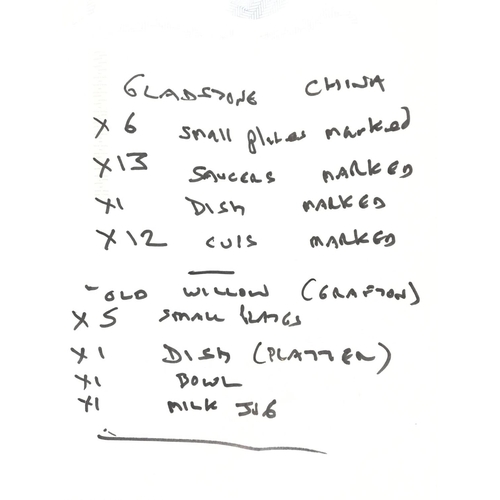 GLADSTONE CHINA
x 6 small plates marked
x13 SAUCERS MARKED
x1 DISH MARKED
x12 CUPS MARKED
"OLD WILLOW (GRAFTON)
x 5 SMALL PLATES
x 1 DISH (PLATTER)
x1 BOWL
x1 MILK JUG